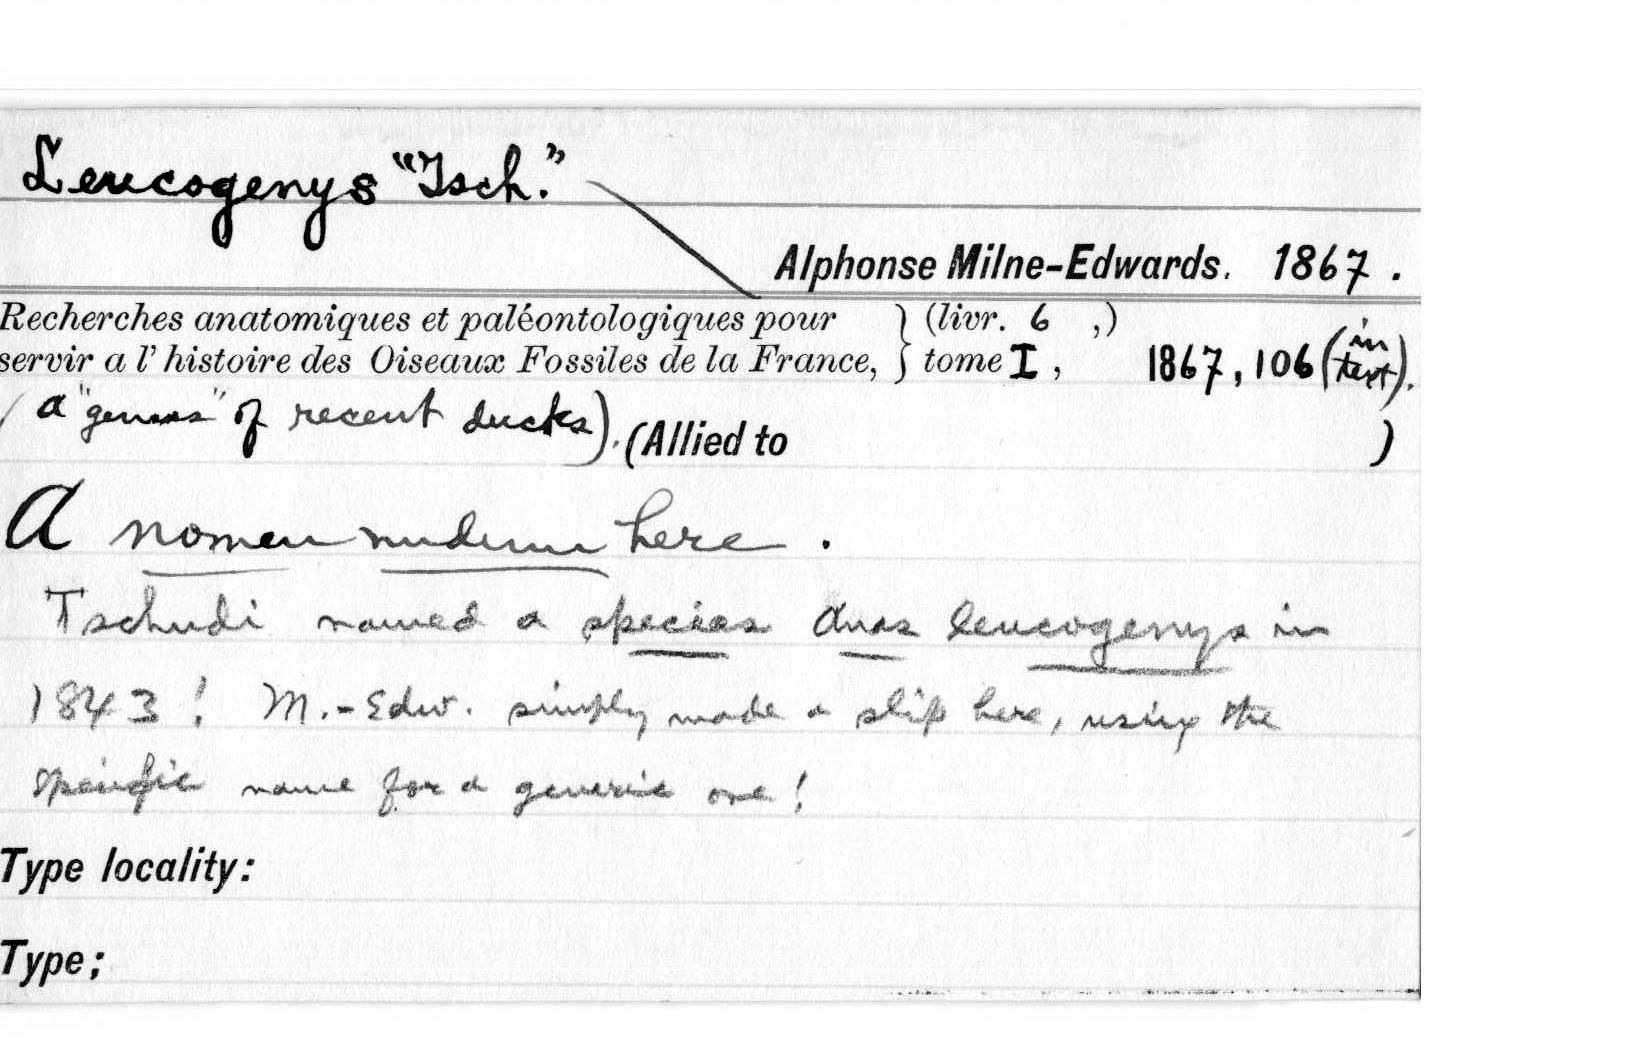 Leucogenys "Tsch."
Alphonse Milne-Edwards. 1867.
Recherches anatomiques et paléontologiques pour } (livr. 6 ,)
servir a l'histoire des Oiseaux Fossiles de la France, } tome I, 1867, 106 (in text).
(a "genus" of recent ducks). (Allied to )
A nomen nudum here.
Tschudi named a species Anas leucogenys in
1843! M.-Edw. simply made a slip here, using the
specific name for a generic one!
Type locality:
Type;